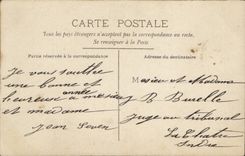 CARTE POSTALE
Tous les pays étrangers n'acceptent pas la correspondance au recto.
Se renseigner à la Poste
Partie réservée à la correspondance
Adresse du destinataire
Je vous souhaite
une bonne et
heureuse année a mesieu
et madame
Jean
Mesieu et Madame
B
Juge au tribunal
La Chatre
Indre